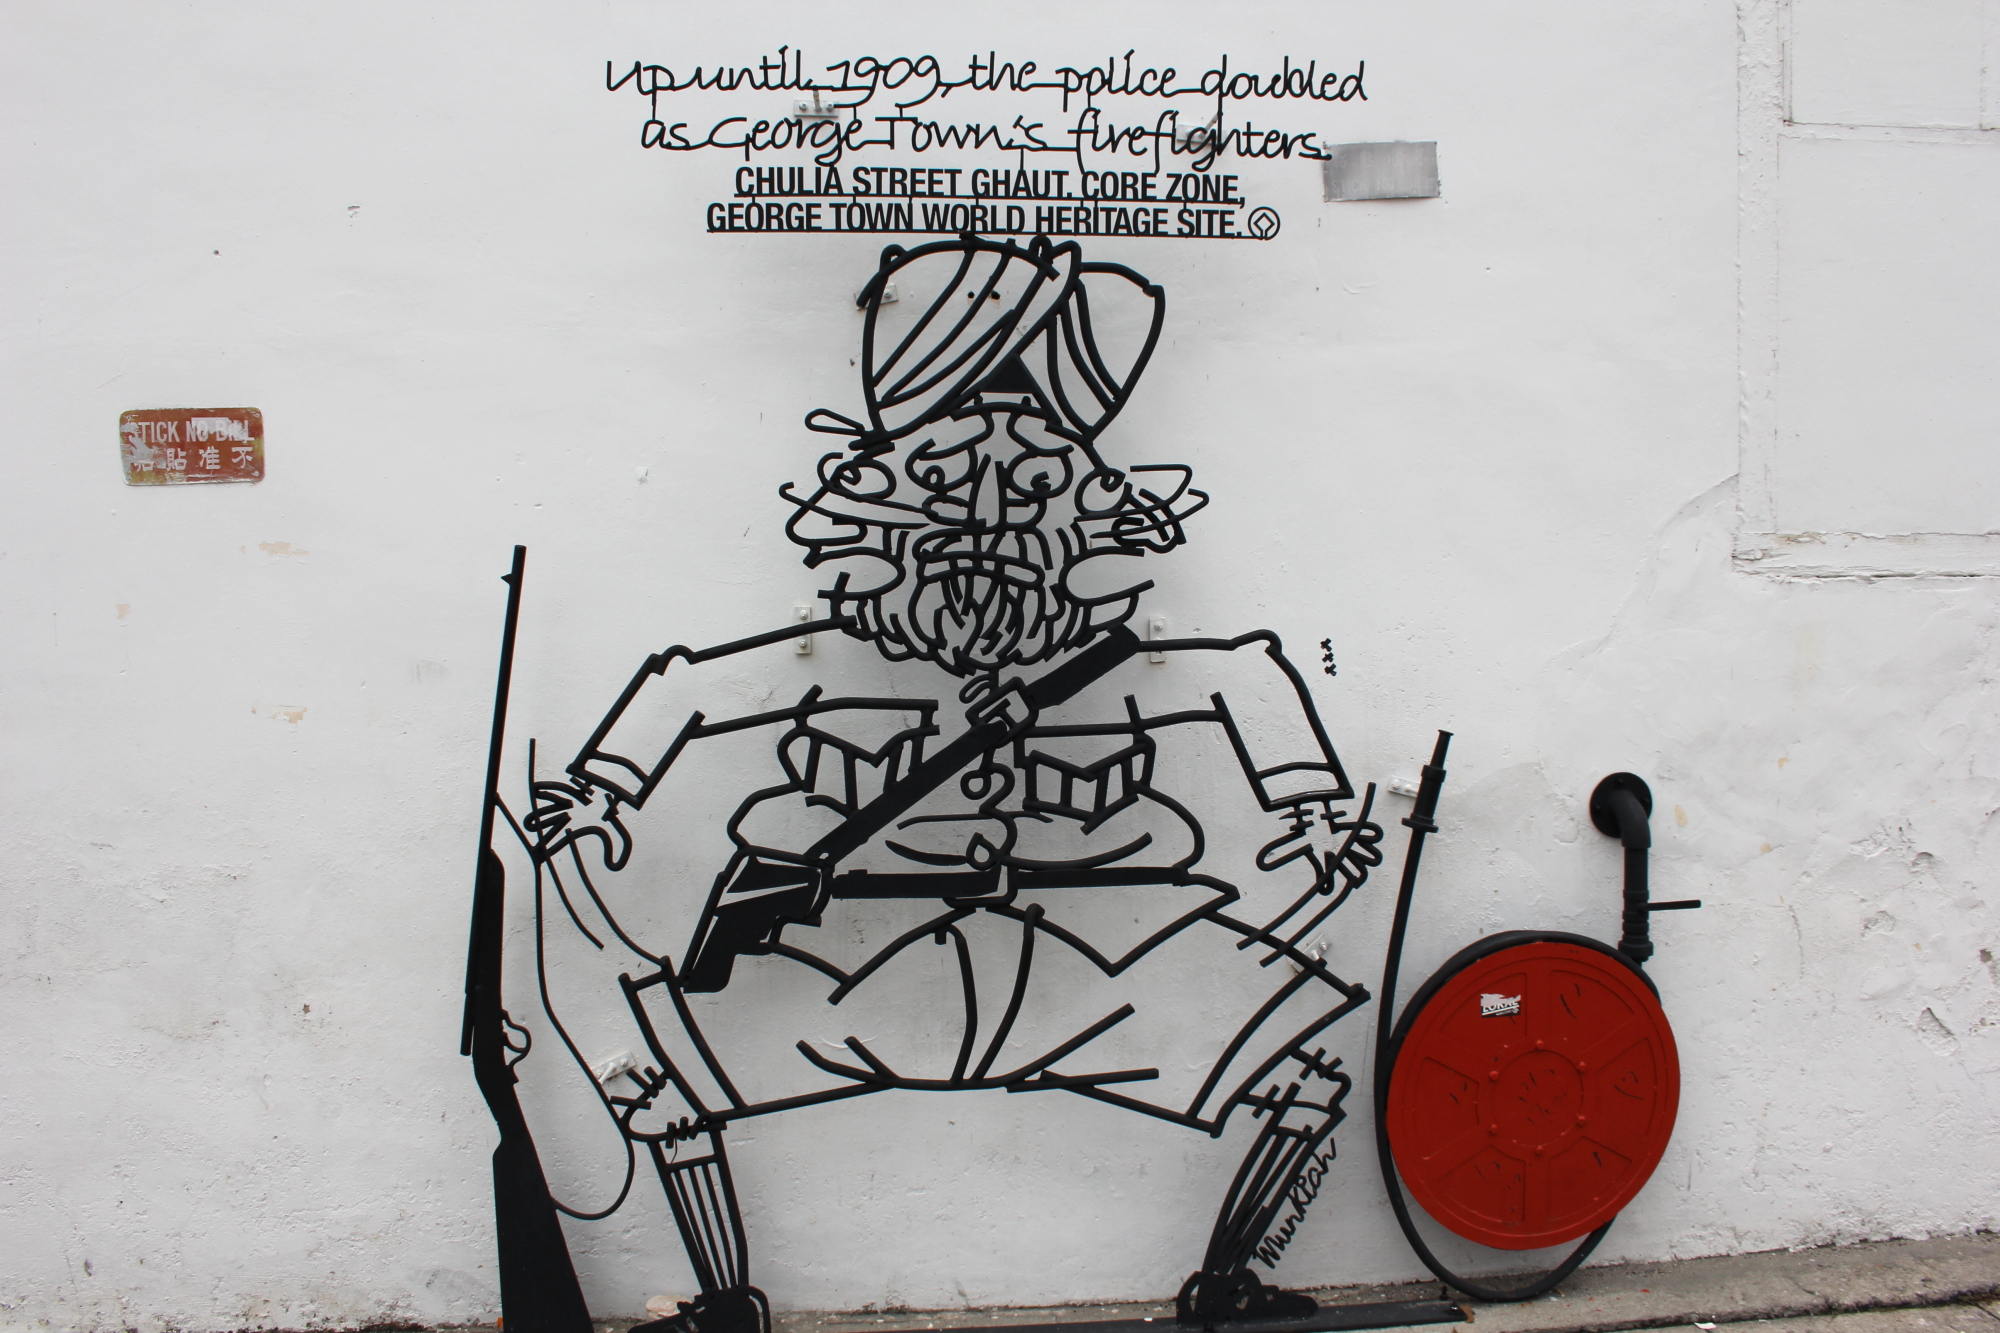 up until 1909, the police doubled
as George Town's firefighters.
CHULIA STREET GHAUT, CORE ZONE,
GEORGE TOWN WORLD HERITAGE SITE.
STICK NO BILL
貼 准 不
Munkiah